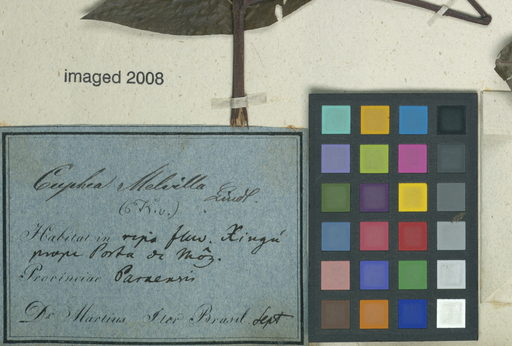 imaged 2008
Cuphea Melvilla Lindl.
Habitat in ripis fluv. Xingú
prope Porto de Moz.
Provinciae Paraensis
Dr. Martius Iter Brasil. Sept